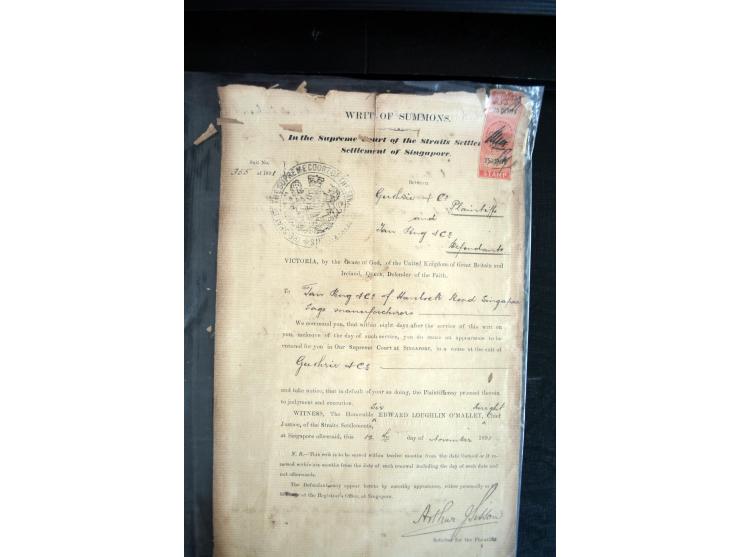 WRIT OF SUMMONS.
In the Supreme Court of the Straits Settle
Settlement of Singapore.
Suit No.
355 of 1891
Between
Guthrie & Co
Plaintiffs
and
Tan Eng & Co
Defendants
VICTORIA, by the Grace of God, of the United Kingdom of Great Britain and
Ireland, Queen, Defender of the Faith.
To Tan Eng & Co of Havlock Road Singapore
Sago manufacturers
We command you, that within eight days after the service of this writ on
you, inclusive of the day of such service, you do cause an appearance to be
entered for you in Our Supreme Court at SINGAPORE, in a cause at the suit of
Guthrie & Co
and take notice, that in default of your so doing, the Plaintiff may proceed therein
to judgment and execution.
Sir Knight
WITNESS, The Honorable EDWARD LOUGHLIN O'MALLEY, Chief
Justice, of the Straits Settlements,
at Singapore aforesaid, this 12th day of November 1891
N. B.—This writ is to be served within twelve months from the date thereof or if re-
newed within six months from the date of such renewal including the day of such date and
not afterwards.
The Defendant may appear hereto by entering appearance, either personally or by
at the Registrar's Office, at Singapore.
Arthur J Sisson
Solicitor for the Plaintiffs
STAMP